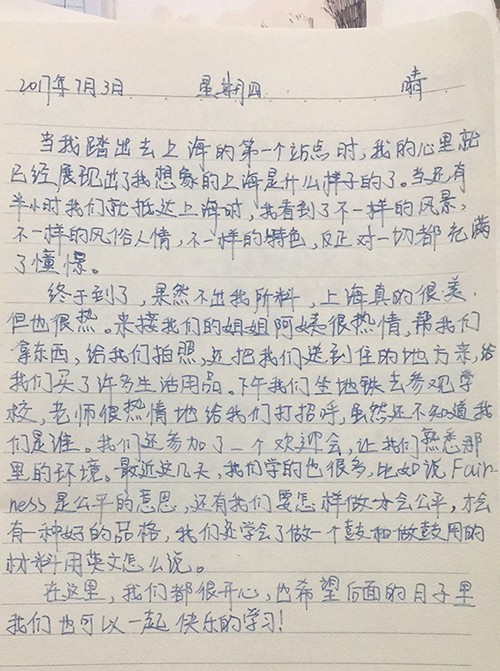 2017年7月3日 星期四 晴
当我踏出去上海的第一个站点时,我的心里就
已经展现出了我想象的上海是什么样子的了。当还有
半小时我们就抵达上海时,我看到了不一样的风景,
不一样的风俗人情,不一样的特色,反正对一切都充满
了憧憬。
终于到了,果然不出我所料,上海真的很美,
但也很热。来接我们的姐姐阿姨很热情,帮我们
拿东西,给我们拍照,还把我们送到住的地方来,给
我们买了许多生活用品。下午我们坐地铁去参观学
校,老师很热情地给我们打招呼,虽然还不知道我
们是谁。我们还参加了一个欢迎会,让我们熟悉那
里的环境。最近这几天,我们学的也很多,比如说Fair-
ness是公平的意思,还有我们要怎样做才会公平,才会
有一种好的品格,我们还学会了做一个鼓和做鼓用的
材料用英文怎么说。
在这里,我们都很开心,也希望后面的日子里
我们也可以一起快乐的学习!